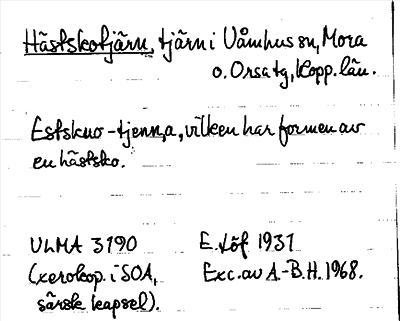 Hästskotjärn, tjärn i Våmhus sn, Mora
o. Orsa tg, Kopp. län.
Estskuo-tjenn,a, vilken har formen av
en hästsko.
ULMA 3190
(xerokop. i SOA,
särsk kapsel).
E. Löf 1931
Exc. av A.-B.H. 1968.